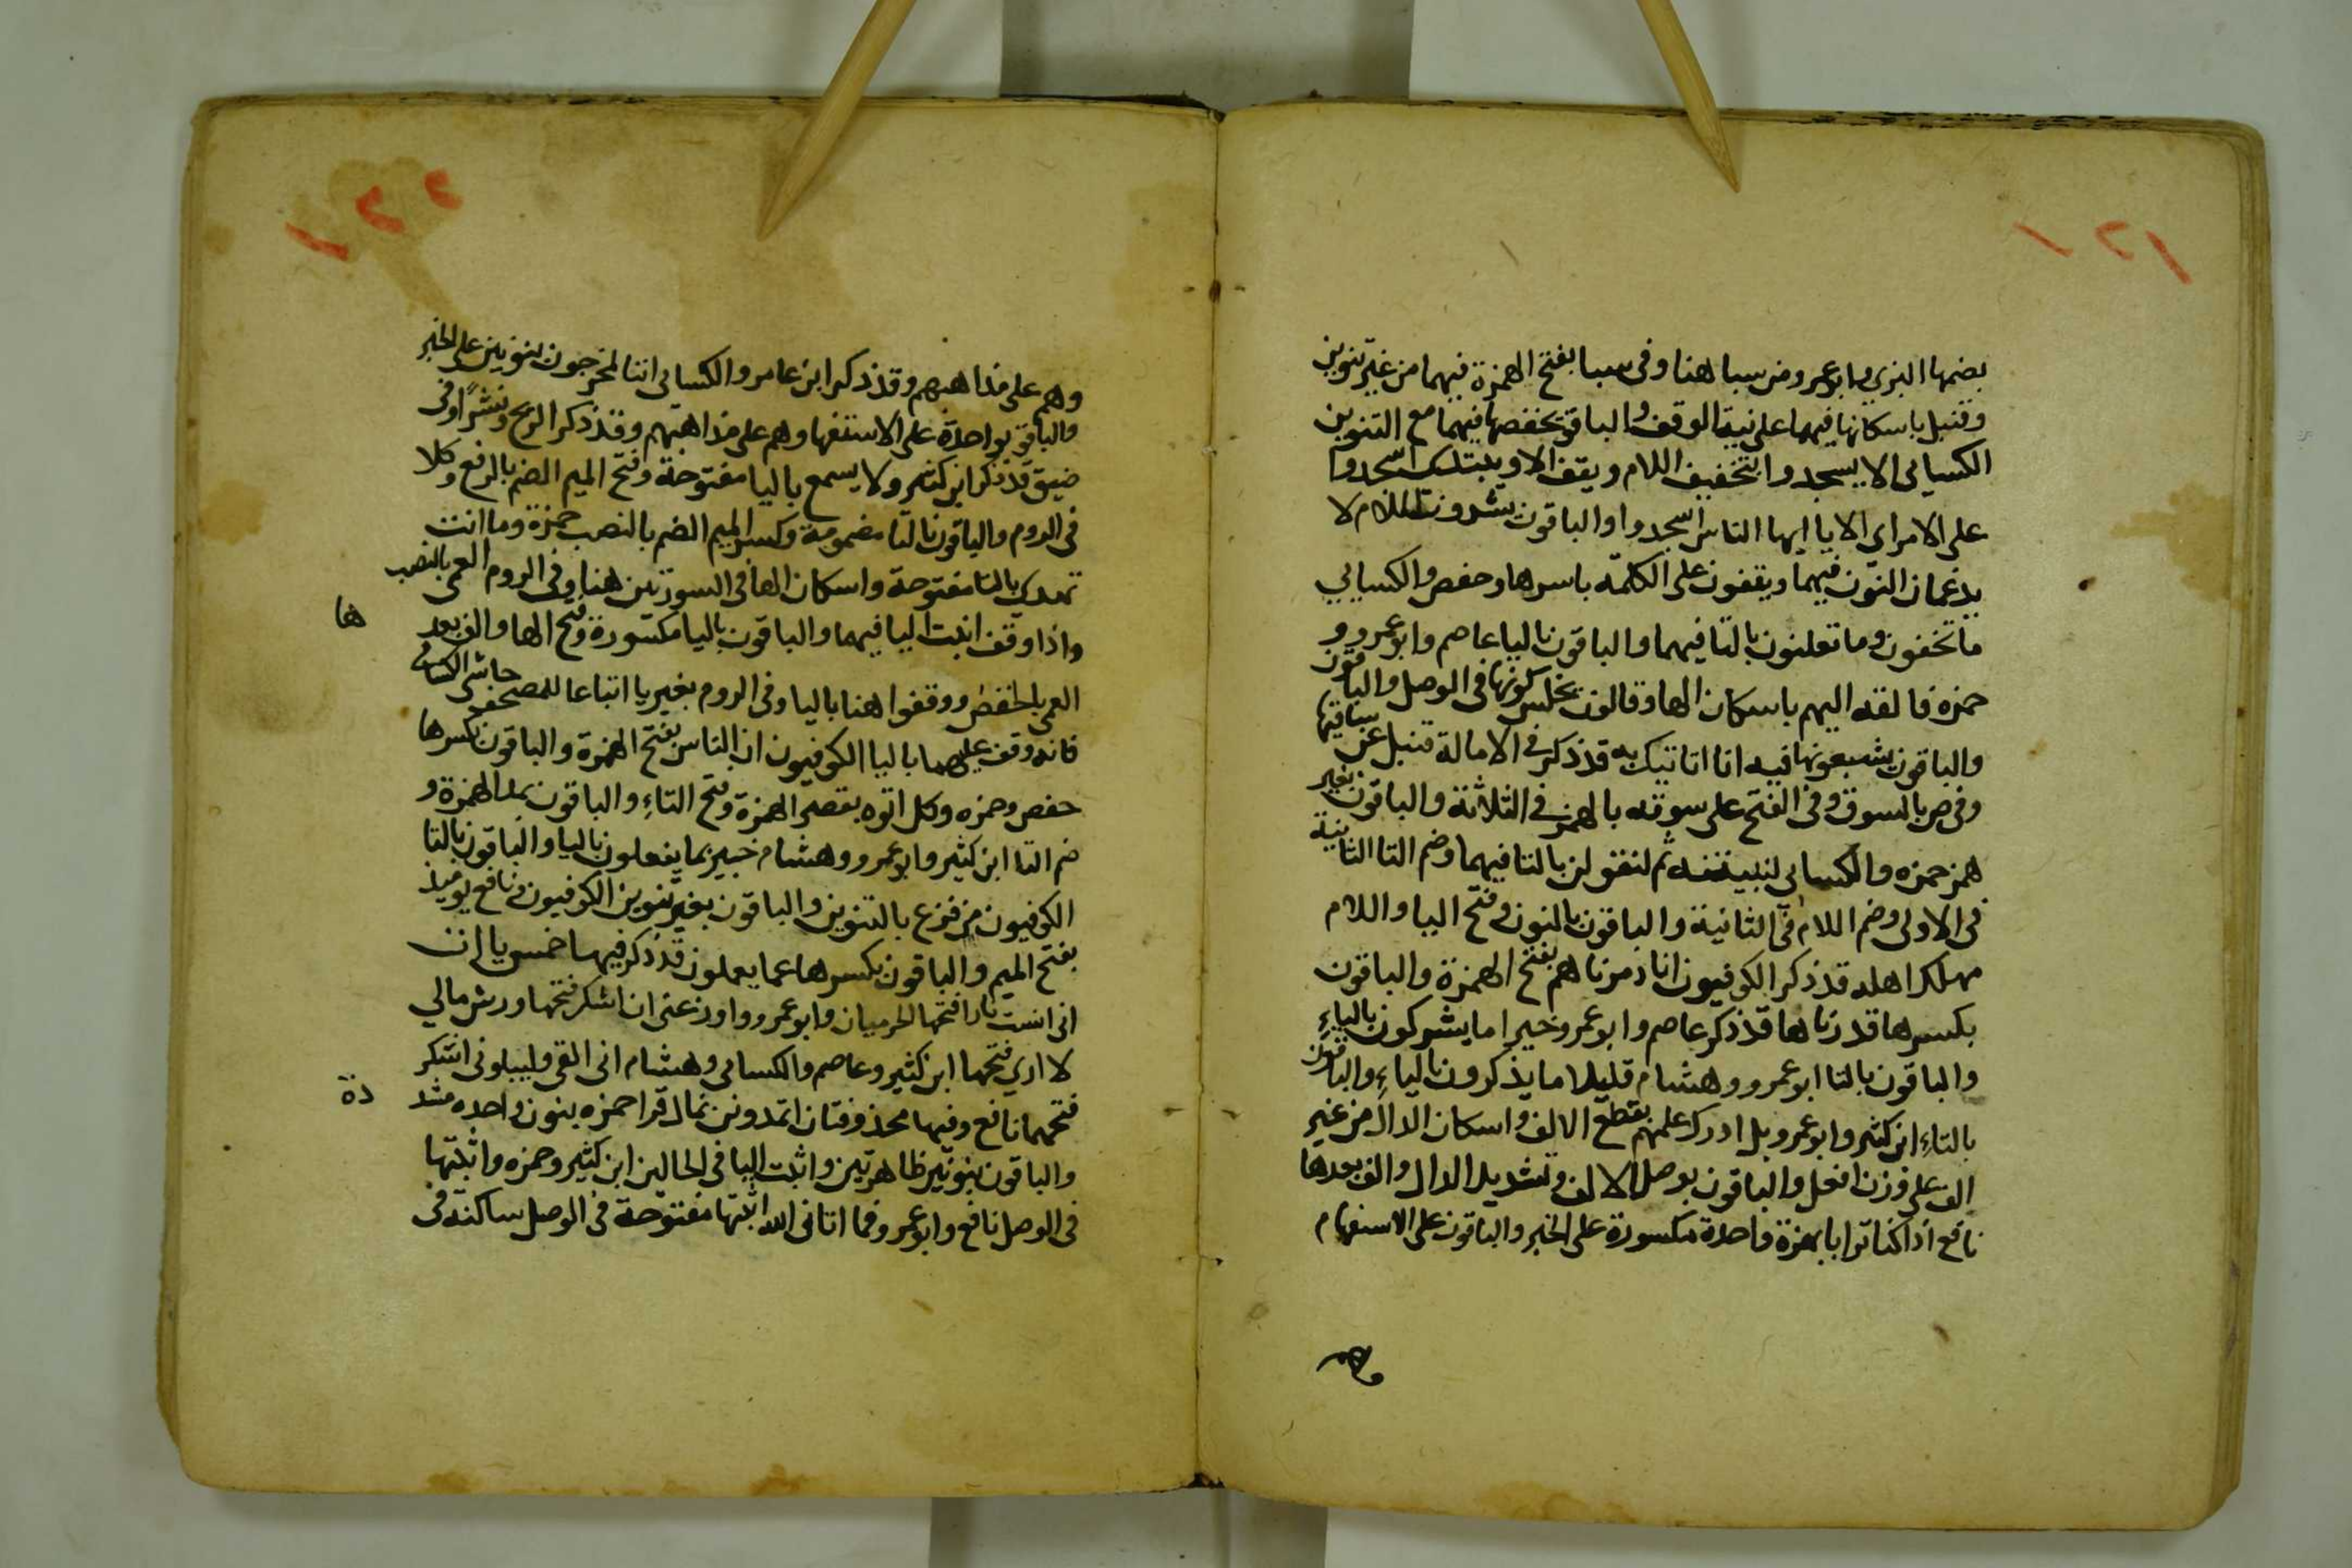 ١٢١
بضمها البزي وابو عمرو من سبا هنا وفى سبا بفتح الهمزة فيهما من غير تنوين
وقنبل باسكانها فيهما على نية الوقف والباقون بخفضها فيهما مع التنوين
الكسايى الا يسجدوا بتخفيف اللام ويقف الا ويبتدى اسجدوا
على الامر اى الا يا ايها الناس اسجدوا والباقون يشددون اللام لا
يدغمان النون فيهما ويقفون على الكلمة باسرها وحفص والكسايي
ما تخفون وما تعلنون بالتا فيهما والباقون باليا عاصم وابو عمرو و
حمزه فالقه اليهم باسكان الها وقالون يختلس كسرتها فى الوصل والباقون
والباقون يشبعونها فيه انا اتيك به قد ذكر فى الامالة قنبل عن ساقيها
وفى ص بالسوق وفى الفتح على سوقه بالهمز فى الثلاثة والباقون بغير
همز حمزه والكسائى لتبيتنه ثم لتقولن بالتا فيهما وضم التا الثانية
فى الاولى وضم اللام فى الثانية والباقون بالنون وفتح اليا واللام
مهلك اهله قد ذكر الكوفيون انا دمرناهم بفتح الهمزة والباقون
بكسرها قدرناها قد ذكر عاصم وابو عمرو خير اما يشركون بالياء
والباقون بالتا ابو عمرو وهشام قليلا ما يذكرون بالياء والباقون
بالتاء ابن كثير وابو عمرو بل ادرك علمهم بقطع الالف واسكان الدال من غير
الف على وزن افعل والباقون بوصل الالف وتشديد الدال والف بعدها
نافع اذا كنا ترابا بهمزة واحدة مكسورة على الخبر والباقون على الاستفهام
وهم
١٢٢
وهم على مذاهبهم وقد ذكر ابن عامر والكسائى اننا لمخرجون بنونين على الخبر
والباقون بواحدة على الاستفها وهم على مذاهبهم وقد ذكر الريح ونشرا وفى
ضيق قد ذكر ابن كثير ولا يسمع باليا مفتوحة وفتح الميم الضم بالرفع وكلا
فى الروم والباقون بالتا مضمومة وكسر الميم الضم بالنصب حمزة وما انت
تهدى بالتا مفتوحة واسكان الها فى السورتين هنا وفى الروم العمى بالنصب
واذا وقف اثبت اليا فيهما والباقون باليا مكسورة وفتح الها والف بعد
ها
العمى بالخفض ووقفوا هنا باليا وفى الروم بغير يا اتباعا للمصحف حاشى الكسائى
فانه وقف عليهما باليا الكوفيون ان الناس بفتح الهمزة والباقون بكسرها
حفص وحمزه وكل اتوه بقصر الهمزة وفتح التاء والباقون بمد الهمزة و
ضم التا ابن كثير وابو عمرو وهشام خبير بما يفعلون باليا والباقون بالتا
الكوفيون من فزع بالتنوين والباقون بغير تنوين الكوفيون ونافع يوميذ
بفتح الميم والباقون بكسرها عما يعملون قد ذكر فيها خمس ياات
انى انست نارا فتحها الحرميان وابو عمرو واوزعنى ان اشكر فتحها ورش مالي
لا ارى فتحها ابن كثير وعاصم والكسائى وهشام انى القى وليبلونى اشكر
فتحهما نافع وفيها محذوفتان اتمدونن بمال قرا حمزه بنون واحده مشد
دة
والباقون بنونين ظاهرتين واثبت اليا فى الحالين ابن كثير وحمزه واثبتها
فى الوصل نافع وابو عمرو فما اتانى الله اثبتها مفتوحة فى الوصل ساكنة فى